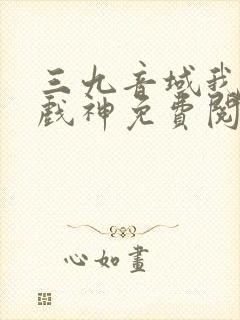 三九音域我
戲神免費閱
心如畫